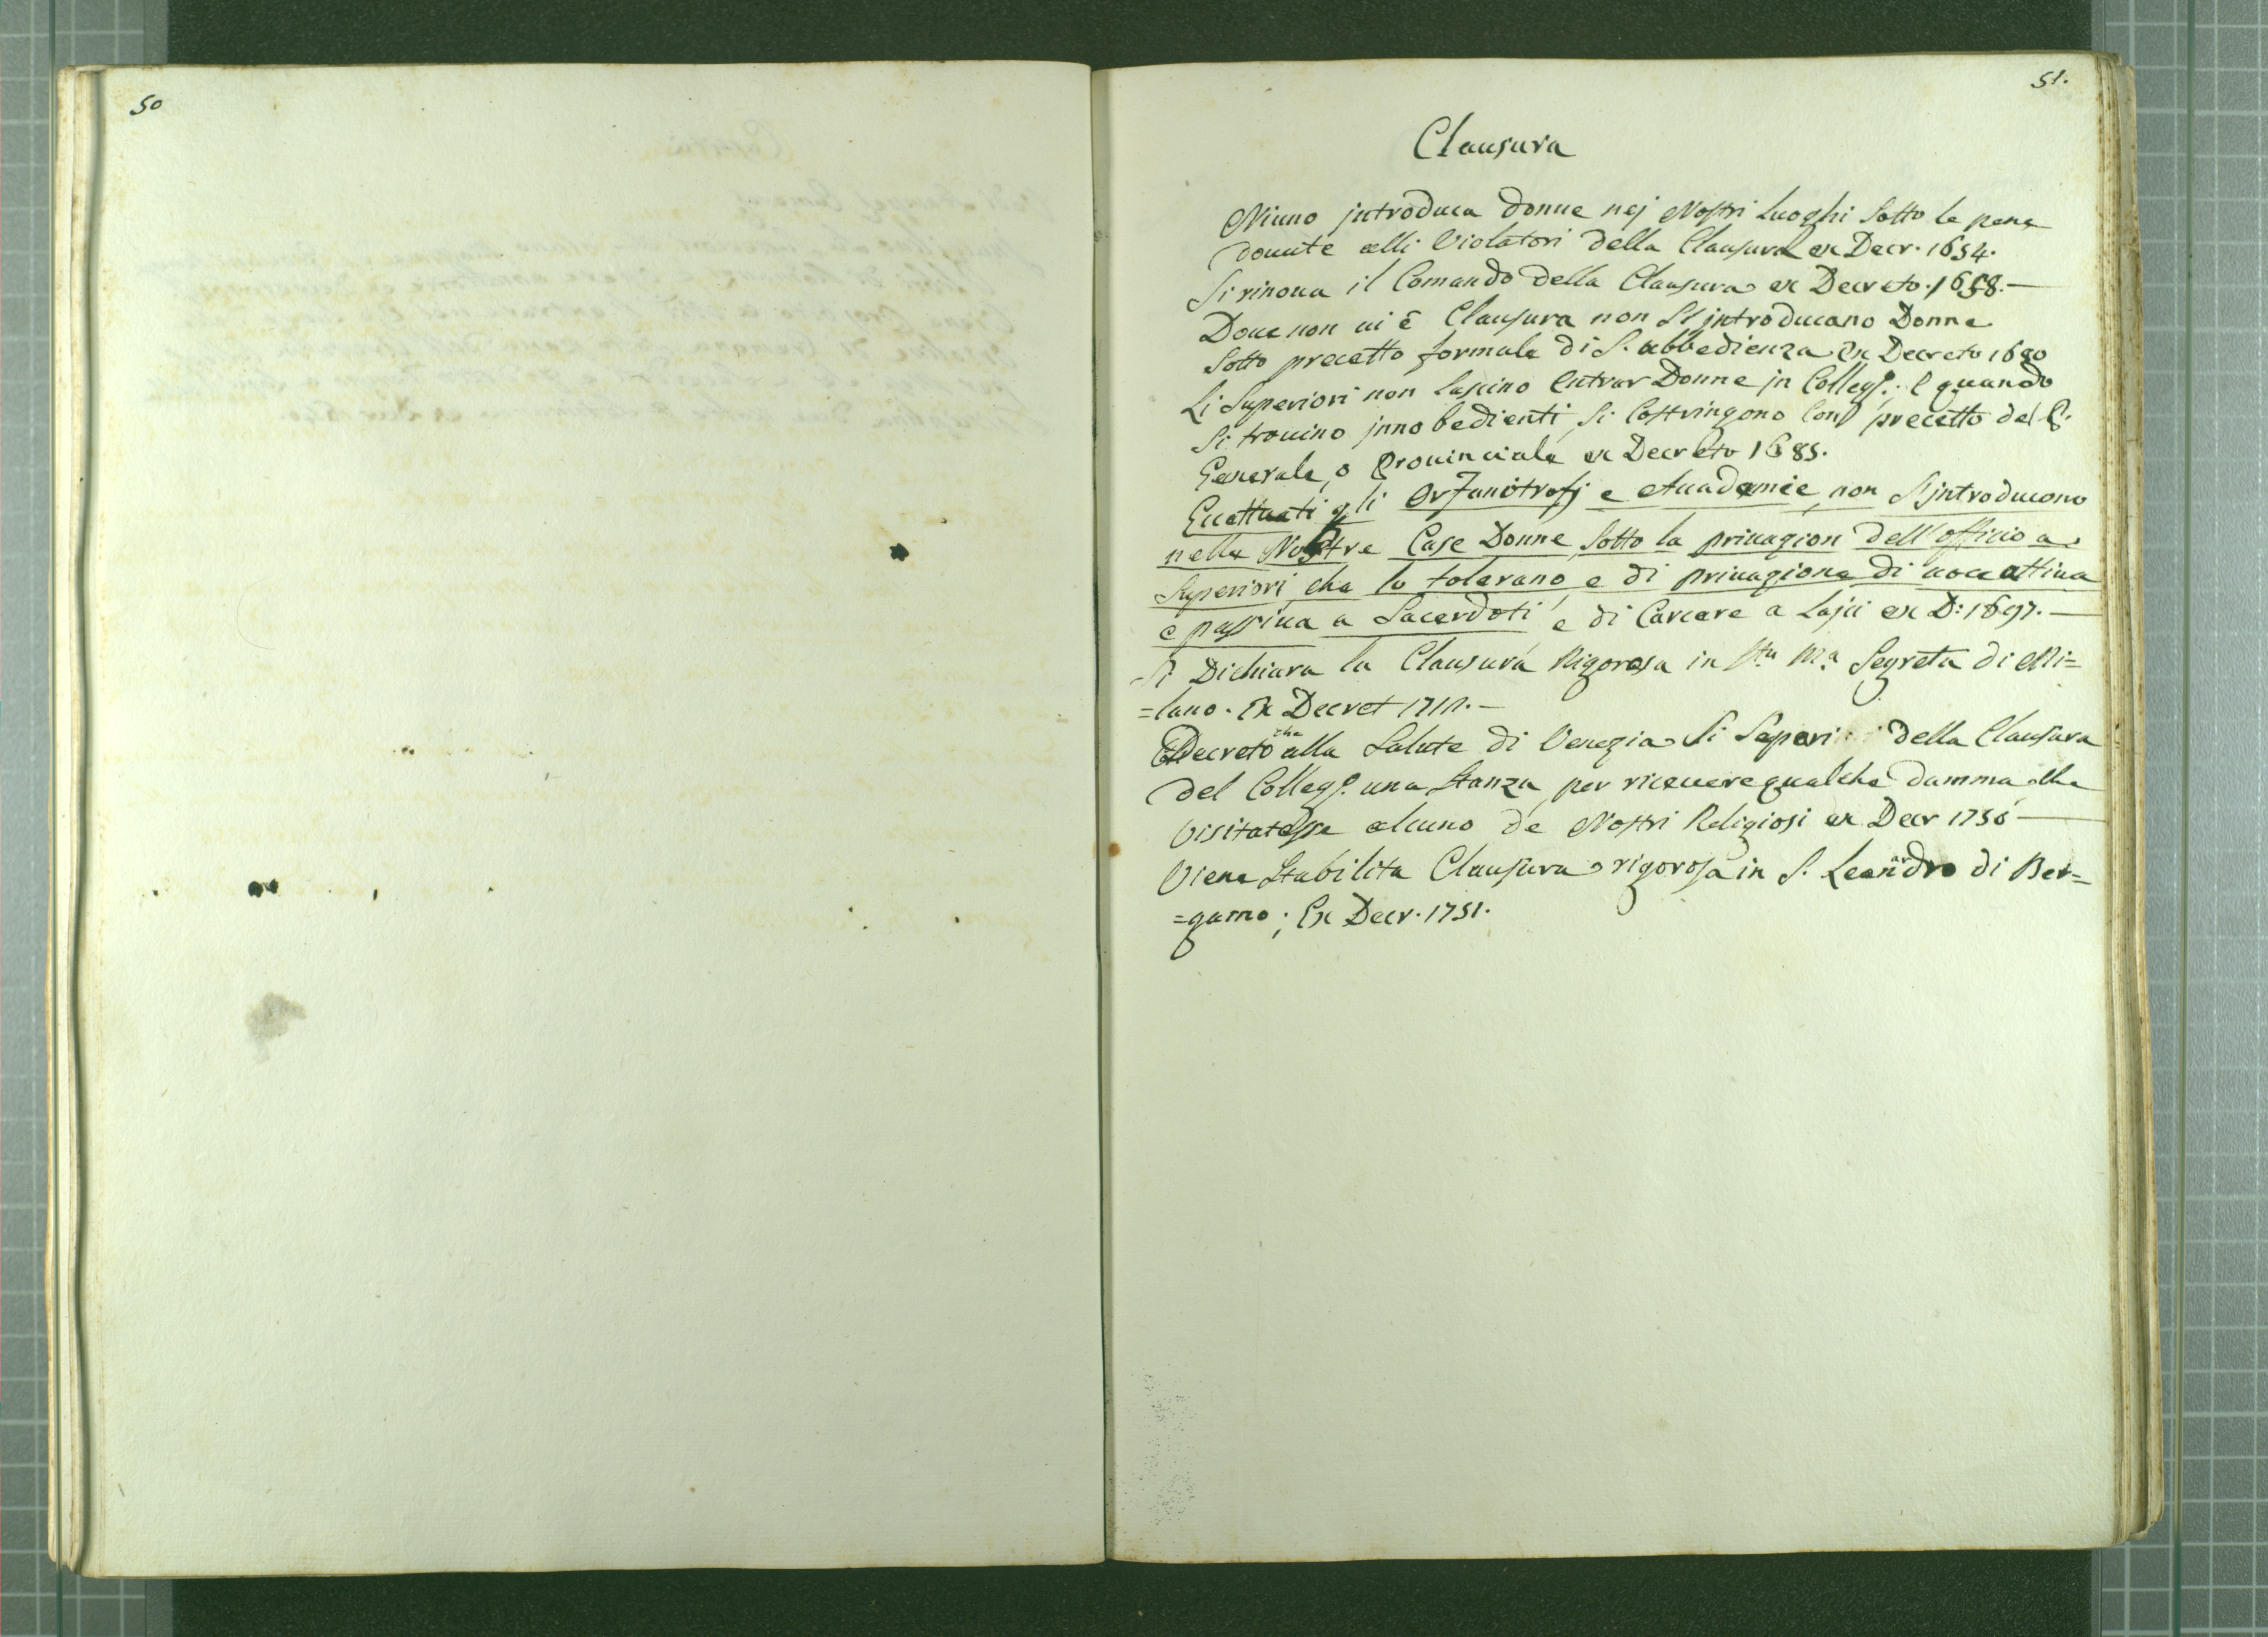 50
51.
Clausura
Niuno introduca donne nej Nostri Luoghi Sotto le pene
douute alli Violatori della Clausura ex Decr. 1654.
Si rinoua il Comando della Clausura ex Decreto. 1658.—
Doue non ui è Clausura non S'introducano Donne
Sotto precetto formale di S. obbedienza Ex Decreto 1680
Li Superiori non lascino Entrar Donne jn Colleg.: E quando
Si trouino jnnobedienti, Si Costringono Con precetto del P.
Generale, o Prouinciale ex Decreto 1685.
Eccettuati gli Orfanotrofj e Accademie, non S'introducono
nelle Nostre Case Donne, Sotto la priuazion dell'officio a
Superiori che lo tolerano, e di priuazione di uoce attiua
e passiua a Sacerdoti, e di Carcere a Laici ex D: 1697.—
Si Dichiara la Clausura Rigorosa in Sta Ma. Segreta di Mi=
=lano. Ex Decret
Decreto che alla Salute di Venezia Si Separi della Clausura
del Colleg. una Stanza per riceuere qualche damma che
Visitatesse alcuno de Nostri Religiosi ex Decr
Viene Stabilita Clausura rigorosa in S. Leandro di Ber=
=gamo; Ex Decr. 1751.